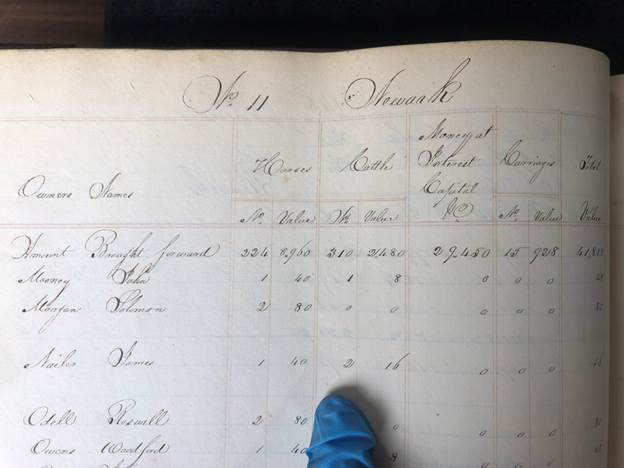 No. 11 Newark
Owners Names Horses Cattle Money at Interest Capital &c Carriages Total
No. Value No. Value No. Value Value
Amount Brought forward 224 8,960 310 2,480 29,450 15 928 41,818
Mooney John 1 40 1 8 0 0 0 48
Morgan Solomon 2 80 0 0 0 0 0
James 1 40 2 16 0 0 0
Odell Roswell 2 80 0 0 0 0
Owens Woodford 1 40 8 0 0 0